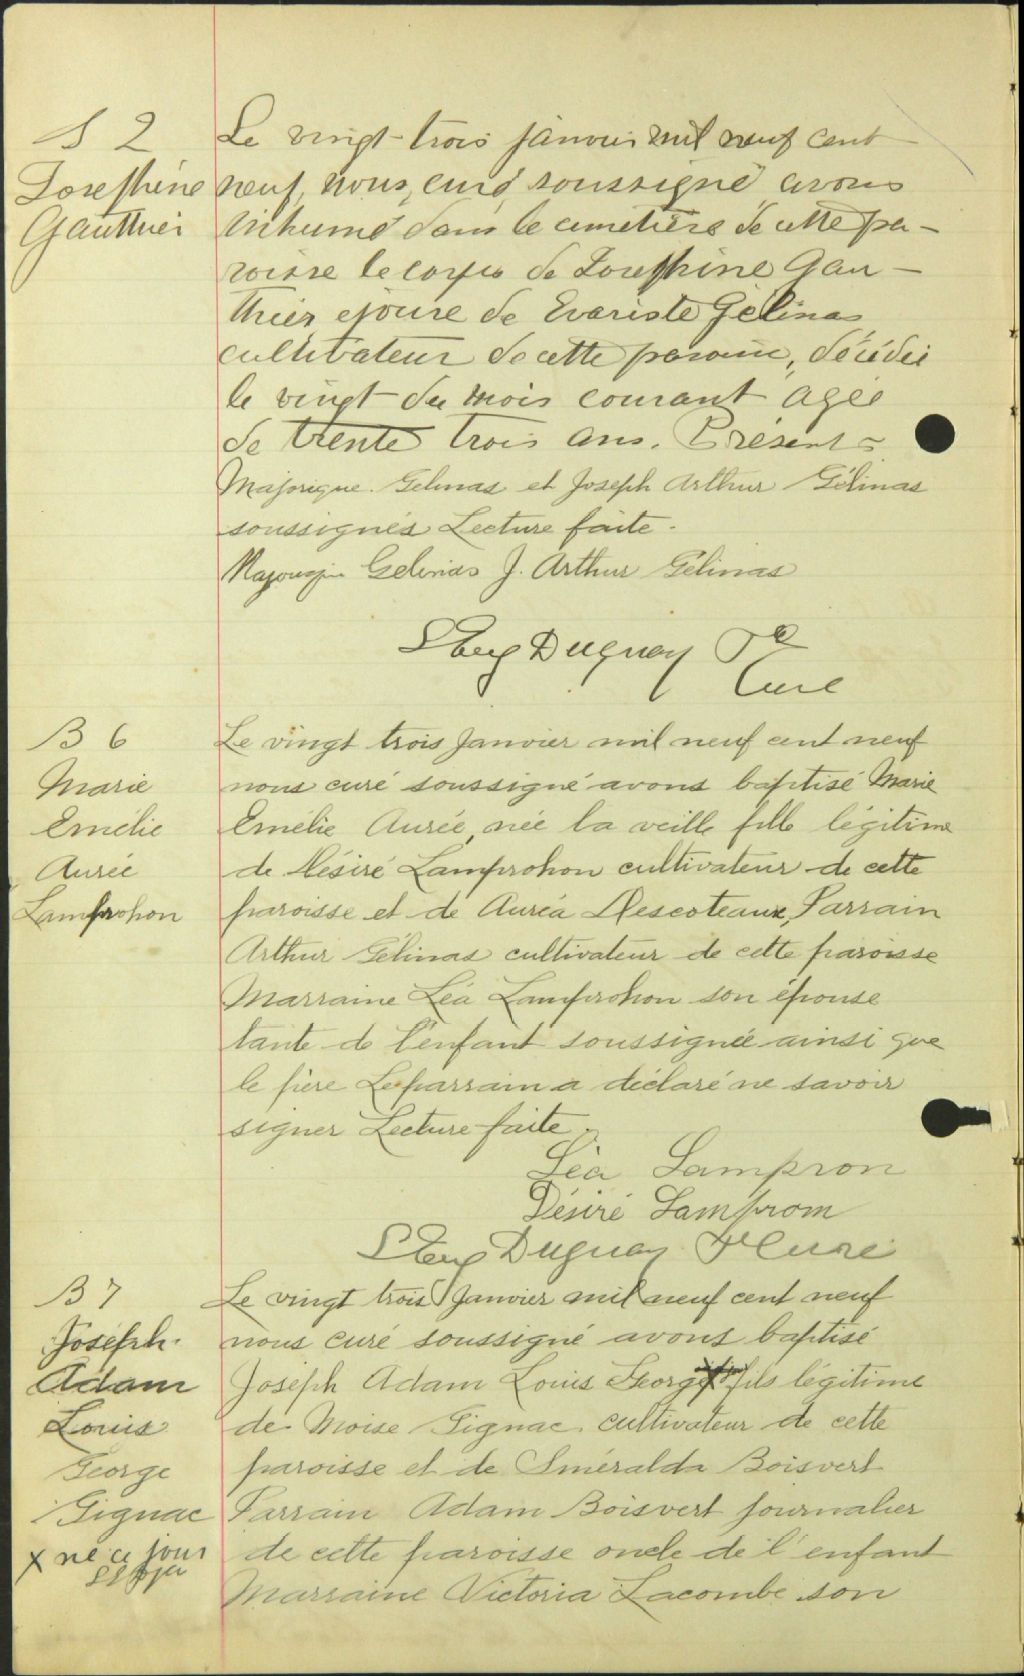 S 2
Josephine
Gauthier
Le vingt-trois janvier mil neuf cent
neuf, nous, curé, soussigné avons
inhumé dans le cimetière de cette pa-
roisse le corps de Josephine Gau-
thier, épouse de Evariste Gélinas
cultivateur de cette paroisse, décédée
le vingt du mois courant agée
de trente trois ans. Présents
Majorique Gelinas et Joseph Arthur Gélinas
soussignés Lecture faite.
Gelinas J. Arthur Gélinas
Duguay Ptre
Curé
B 6
Marie
Emélie
Aurée
Lamprohon
Le vingt trois Janvier mil neuf cent neuf
nous curé soussigné avons baptisé Marie
Emélie Aurée, née la veille fille légitime
de Désiré Lamprohon cultivateur de cette
paroisse et de Auréa Descoteaux, Parrain
Arthur Gélinas cultivateur de cette paroisse
Marraine Léa Lamprohon son épouse
tante de l'enfant soussignée ainsi que
le père Le parrain a déclaré ne savoir
signer Lecture faite.
Léa Lampron
Désiré Lampron
Duguay Ptre Curé
B 7
Joseph
Adam
Louis
George
Gignac
x né ce jour
Le vingt trois Janvier mil neuf cent neuf
nous curé soussigné avons baptisé
Joseph Adam Louis George x fils légitime
de Moise Gignac cultivateur de cette
paroisse et de Sméralda Boisvert
Parrain Adam Boisvert journalier
de cette paroisse oncle de l'enfant
Marraine Victoria Lacombe son